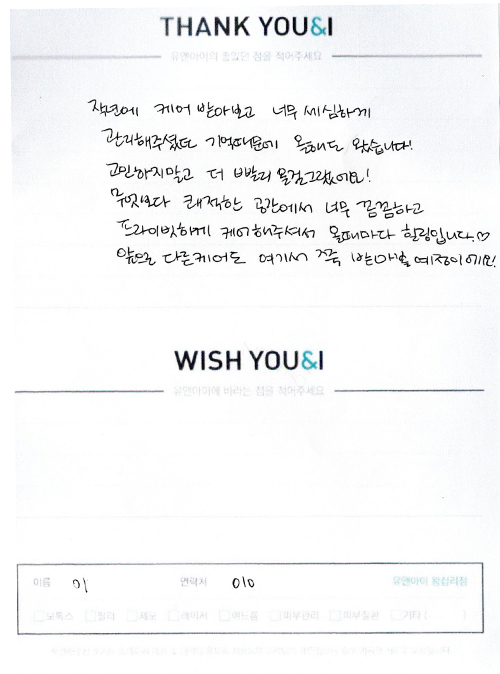 THANK YOU&I
유앤아이의 좋았던 점을 적어주세요
작년에 케어 받아보고 너무 세심하게
관리해주셨던 기억때문에 올해도 왔습니다!
고민하지말고 더 빨리 올걸그랬어요!
무엇보다 쾌적한 공간에서 너무 꼼꼼하고
프라이빗하게 케어해주셔서 올때마다 힐링입니다.♡
앞으로 다른케어도 여기서 쭉 받아볼 예정이에요!
WISH YOU&I
유앤아이에 바라는 점을 적어주세요
이름 이 연락처 010 유앤아이 왕십리점
보톡스 필러 제모 레이저 여드름 피부관리 피부질환 기타 ( )